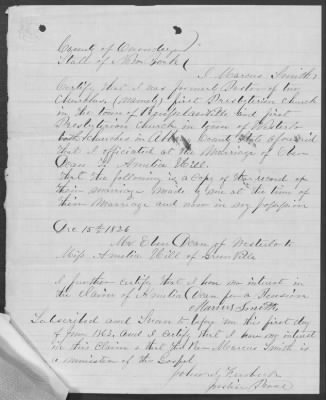 County of Onondaga
State of New York
I Marcus Smith
Certify that I was former Pastor of two
Churches (namely) first Presbyterian Church
in the town of Rensselaerville and first
Presbyterian Church in town of Westerlo
both Churches in Albany County State aforesaid
that I officiated at the Marriage of Eben
Dean & Amelia Hill.
that the following is a Copy of the record of
their marriage made by me at the time of
their Marriage and now in my possession
Dec 15th 1826
Mr Eben Dean of Westerlo to
Miss Amelia Hill of
I further certify that I have no interest in
the Claim of Amelia Dean for a Pension
Marcus Smith
Subscribed and Sworn to before me this first day
of June 1863. and I certify that I have no interest
in this Claim & that the Rev Marcus Smith is
a minister of the Gospel
John
Justice Peace